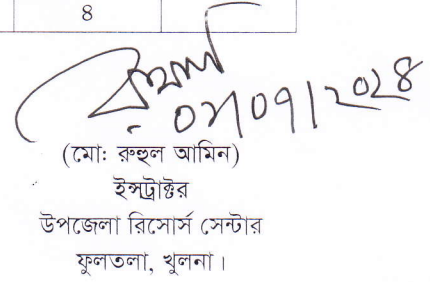 ৪
(মো: রুহুল আমিন)
ইন্সট্রাক্টর
উপজেলা রিসোর্স সেন্টার
ফুলতলা, খুলনা।